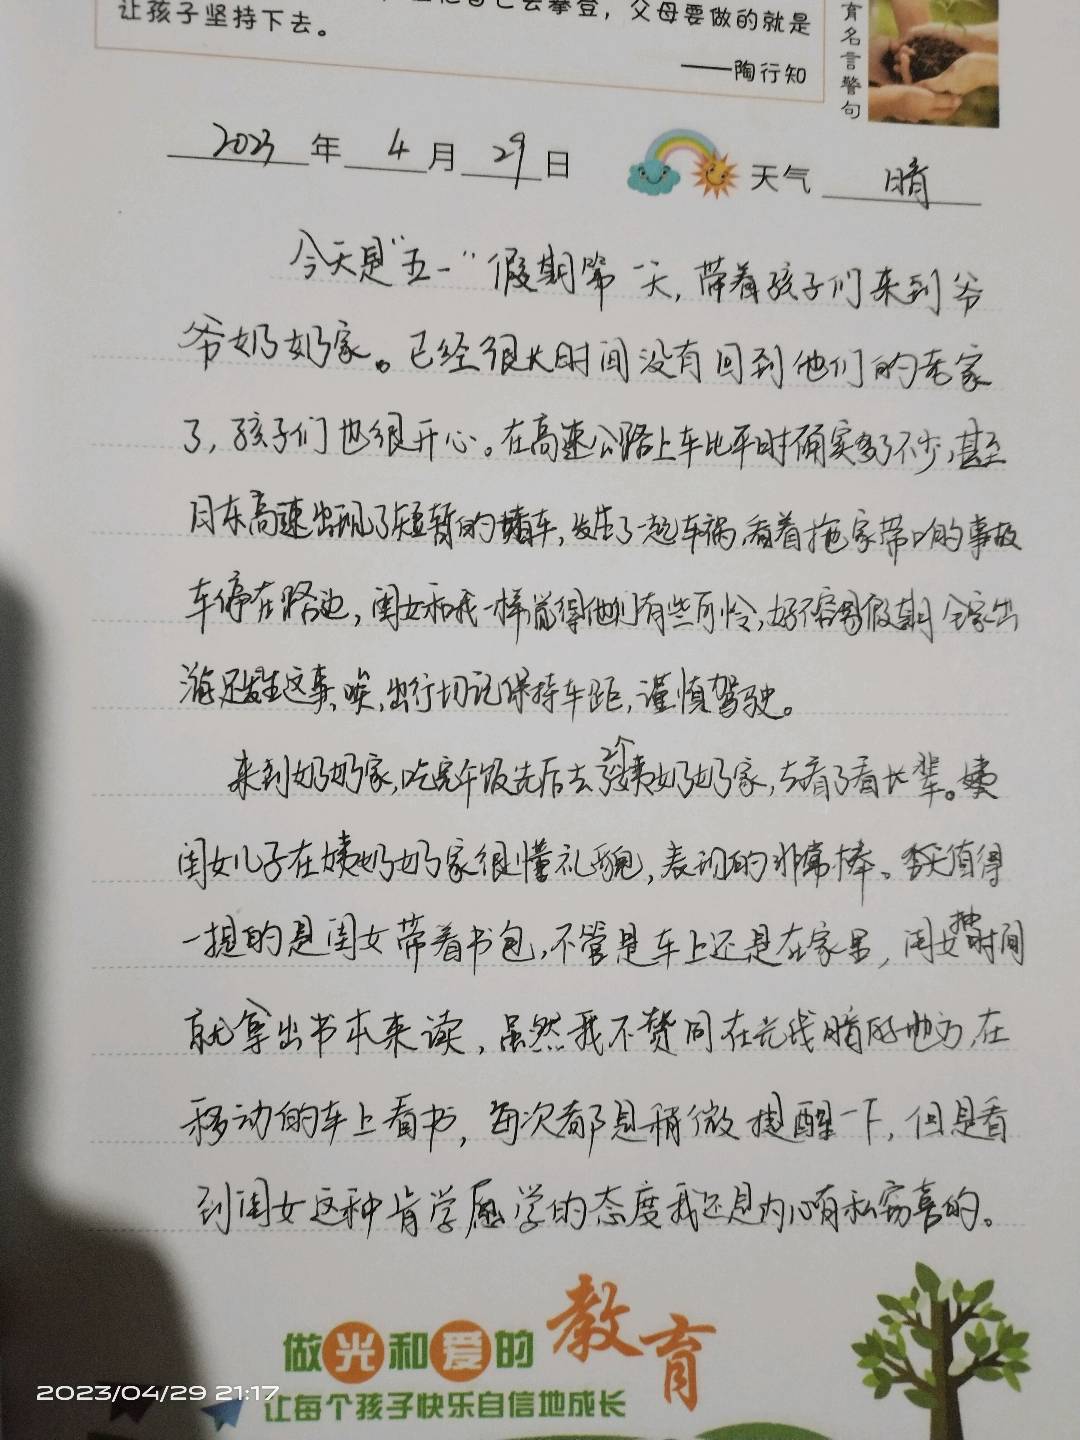 让孩子坚持下去。
去攀登，父母要做的就是
——陶行知
育名言警句
2023年4月29日 天气 晴
今天是“五一”假期第一天，带着孩子们来到爷
爷奶奶家。已经很长时间没有回到他们的老家
了，孩子们也很开心。在高速公路上车比平时确实多了不少，甚至
日东高速出现了短暂的堵车，发生了一起车祸，看着拖家带口的事故
车停在路边，闺女和我一样觉得他们有些可怜，好不容易假期全家出
游还发生这事，唉，出行切记保持车距，谨慎驾驶。
来到奶奶家，吃完午饭先后去了2个姨奶奶家，去看了看长辈。姨
闺女儿子在姨奶奶家很懂礼貌，表现的非常棒。今天值得
一提的是闺女带着书包，不管是车上还是在家里，闺女抽时间
就拿出书本来读，虽然我不赞同在光线暗的地方，在
移动的车上看书，每次都是稍微提醒一下，但是看
到闺女这种肯学愿学的态度我还是内心有私窃喜的。
做光和爱的教育
让每个孩子快乐自信地成长
2023/04/29 21:17